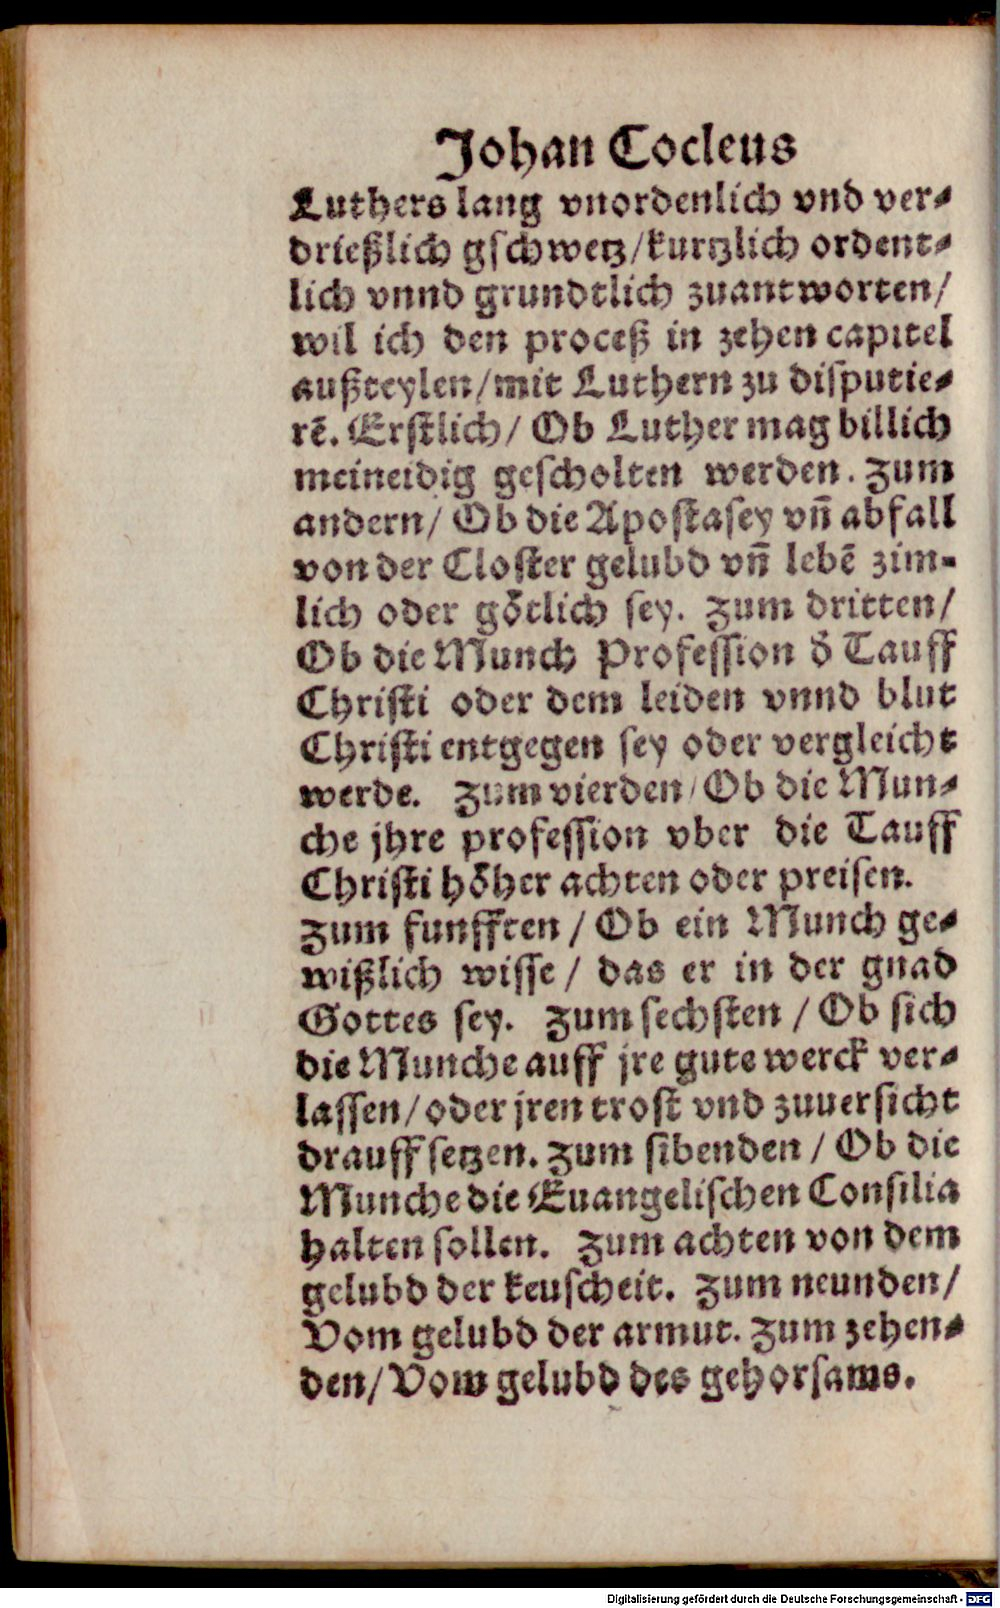 Johan Cocleus
Luthers lang vnordenlich vnd ver⸗
drießlich gschwetz/kurtzlich ordent⸗
lich vnnd grundtlich zuantworten/
wil ich den proceß in zehen capitel
außteylen/mit Luthern zu disputie⸗
rē. Erstlich/ Ob Luther mag billich
meineidig gescholten werden. Zum
andern/ Ob die Apostasey vn̄ abfall
von der Closter gelubd vn̄ lebē zim-
lich oder goͤtlich sey. Zum dritten/
Ob die Munch Profession d̄ Tauff
Christi oder dem leiden vnnd blut
Christi entgegen sey oder vergleicht
werde. Zum vierden/Ob die Mun⸗
che jhre profession vber die Tauff
Christi hoͤher achten oder preisen.
Zum funfften / Ob ein Munch ge⸗
wißlich wisse / das er in der gnad
Gottes sey. Zum sechsten / Ob sich
die Munche auff jre gute werck ver⸗
lassen/oder jren trost vnd zuuersicht
drauff setzen. Zum sibenden / Ob die
Munche die Euangelischen Consilia
halten sollen. Zum achten von dem
gelubd der keuscheit. Zum neunden/
Vom gelubd der armut. Zum zehen⸗
den/Vom gelubd des gehorsams.
Digitalisierung gefördert durch die Deutsche Forschungsgemeinschaft - DFG